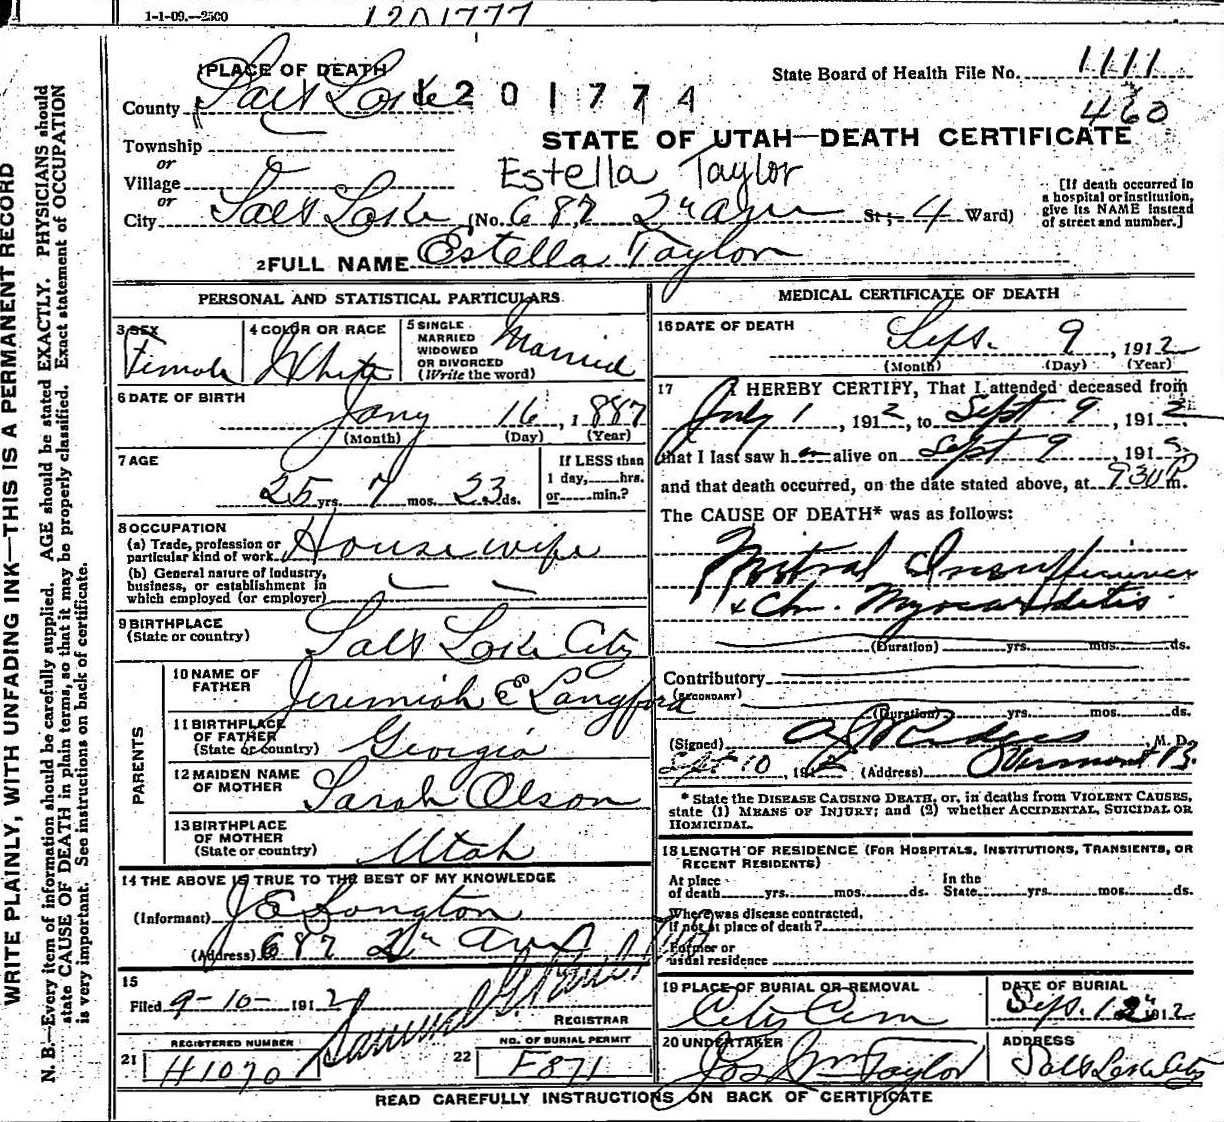 1-1-09.—2500
1201777
1 PLACE OF DEATH
State Board of Health File No. 1111
County Salt Lake
1201774
460
STATE OF UTAH—DEATH CERTIFICATE
Township
or
Village
Estella Taylor
or
City Salt Lake (No. 687 2nd Ave St; 4 Ward)
[If death occurred in
a hospital or institution,
give its NAME instead
of street and number.]
2 FULL NAME Estella Taylor
PERSONAL AND STATISTICAL PARTICULARS
3 SEX
Female
4 COLOR OR RACE
White
5 SINGLE
MARRIED
WIDOWED
OR DIVORCED
(Write the word)
Married
6 DATE OF BIRTH
Jany 16, 1887
(Month) (Day) (Year)
7 AGE
25 yrs. 7 mos. 23 ds.
If LESS than
1 day, hrs.
or min.?
8 OCCUPATION
(a) Trade, profession or
particular kind of work
House wife
(b) General nature of industry,
business, or establishment in
which employed (or employer)
9 BIRTHPLACE
(State or country)
Salt Lake City
PARENTS
10 NAME OF
FATHER
Jeremiah E Langford
11 BIRTHPLACE
OF FATHER
(State or country)
Georgia
12 MAIDEN NAME
OF MOTHER
Sarah Olson
13 BIRTHPLACE
OF MOTHER
(State or country)
Utah
14 THE ABOVE IS TRUE TO THE BEST OF MY KNOWLEDGE
(Informant) J E Langton
(Address) 687 2nd Ave
15
Filed 9-10- 1912
Samuel G. Paul
REGISTRAR
REGISTERED NUMBER
21 H1070
NO. OF BURIAL PERMIT
22 F871
MEDICAL CERTIFICATE OF DEATH
16 DATE OF DEATH
Sept. 9, 1912
(Month) (Day) (Year)
17 I HEREBY CERTIFY, That I attended deceased from
July 1, 1912, to Sept 9, 1912
that I last saw her alive on Sept 9, 1912
and that death occurred, on the date stated above, at 930 P m.
The CAUSE OF DEATH* was as follows:
Mitral Insufficiency
& Chr. Myocarditis
(Duration) yrs. mos. ds.
Contributory
(SECONDARY)
(Duration) yrs. mos. ds.
(Signed) M. D.
Sept 10, 1912 (Address) Vermont B.
* State the DISEASE CAUSING DEATH, or, in deaths from VIOLENT CAUSES,
state (1) MEANS OF INJURY; and (2) whether ACCIDENTAL, SUICIDAL OR
HOMICIDAL.
18 LENGTH OF RESIDENCE (FOR HOSPITALS, INSTITUTIONS, TRANSIENTS, OR
RECENT RESIDENTS)
At place
of death yrs. mos. ds.
In the
State yrs. mos. ds.
Where was disease contracted,
if not at place of death?
Former or
usual residence
19 PLACE OF BURIAL OR REMOVAL
City Cem
DATE OF BURIAL
Sept. 12 1912
20 UNDERTAKER
Jos Wm Taylor
ADDRESS
Salt Lake City
READ CAREFULLY INSTRUCTIONS ON BACK OF CERTIFICATE
WRITE PLAINLY, WITH UNFADING INK—THIS IS A PERMANENT RECORD
N. B.—Every item of information should be carefully supplied. AGE should be stated EXACTLY. PHYSICIANS should
state CAUSE OF DEATH in plain terms, so that it may be properly classified. Exact statement of OCCUPATION
is very important. See instructions on back of certificate.